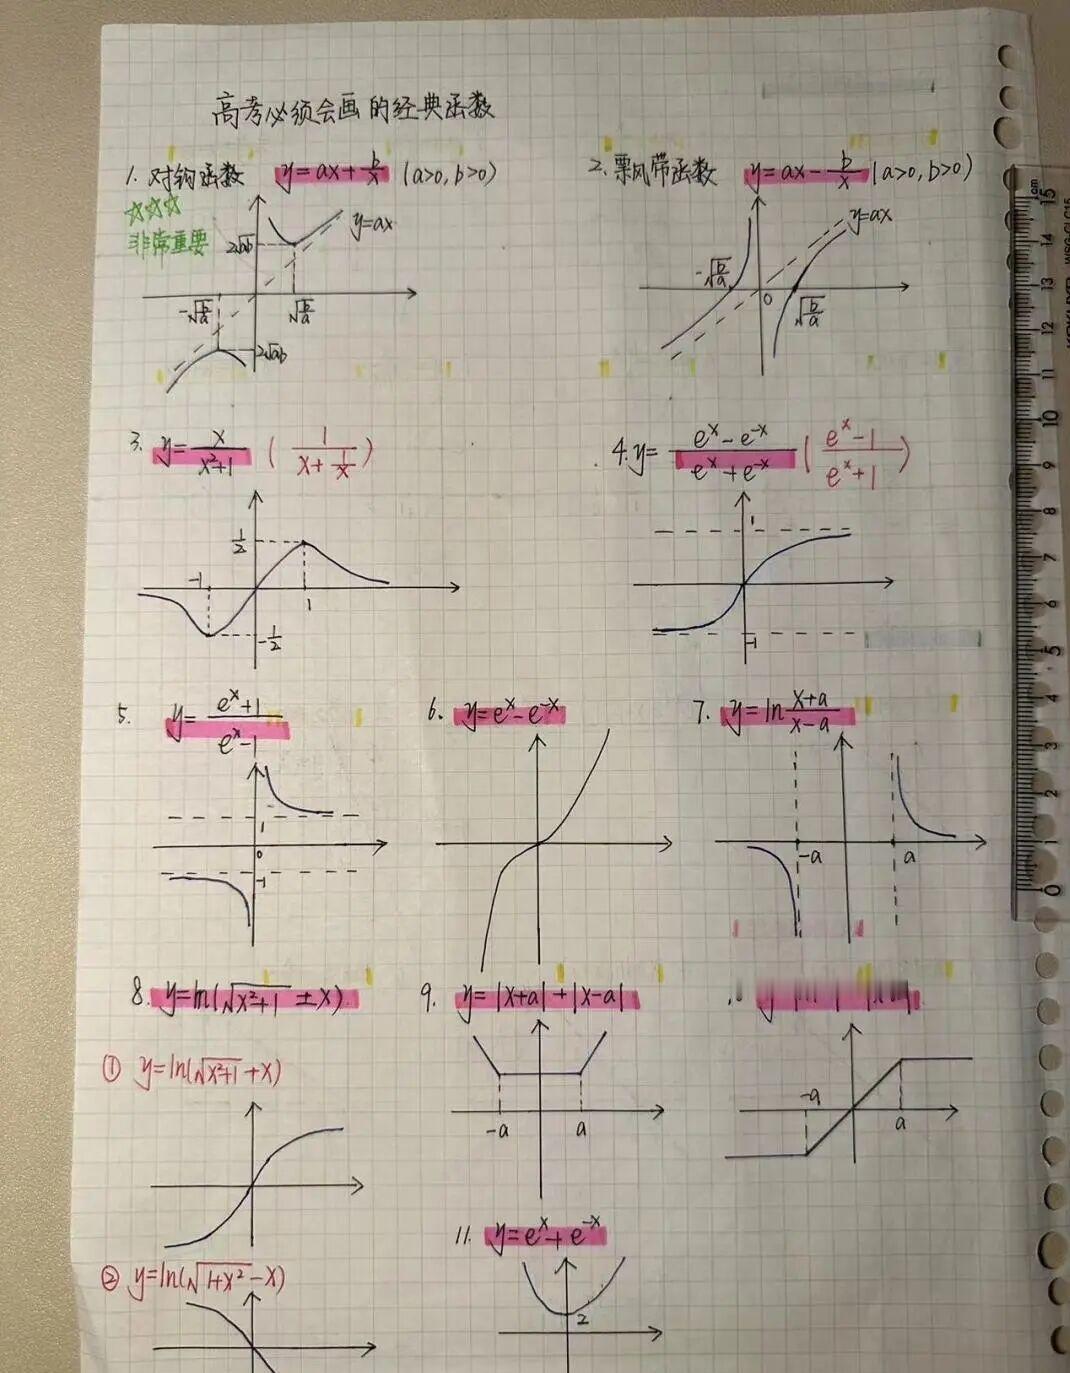 高考必须会画的经典函数
1. 对钩函数 y=ax+b/x (a>0, b>0)
☆☆☆
非常重要
2√ab
y=ax
-√(b/a)
√(b/a)
2√ab
2. 飘带函数 y=ax-b/x (a>0, b>0)
y=ax
-√(b/a)
0
√(b/a)
3. y=x/(x²+1) (1/(x+1/x))
1/2
-1
1
-1/2
4. y=(eˣ-e⁻ˣ)/(eˣ+e⁻ˣ) ((eˣ-1)/(eˣ+1))
1
-1
5. y=(eˣ+1)/(eˣ-1)
1
0
-1
6. y=eˣ-e⁻ˣ
7. y=ln (x+a)/(x-a)
-a
a
8. y=ln(√(x²+1) ±x)
① y=ln(√(x²+1)+x)
② y=ln(√(1+x²)-x)
9. y=|x+a|+|x-a|
-a
a
-a
a
11. y=eˣ+e⁻ˣ
2
cm
15
14
13
12
11
10
9
8
7
6
5
4
3
2
1
0